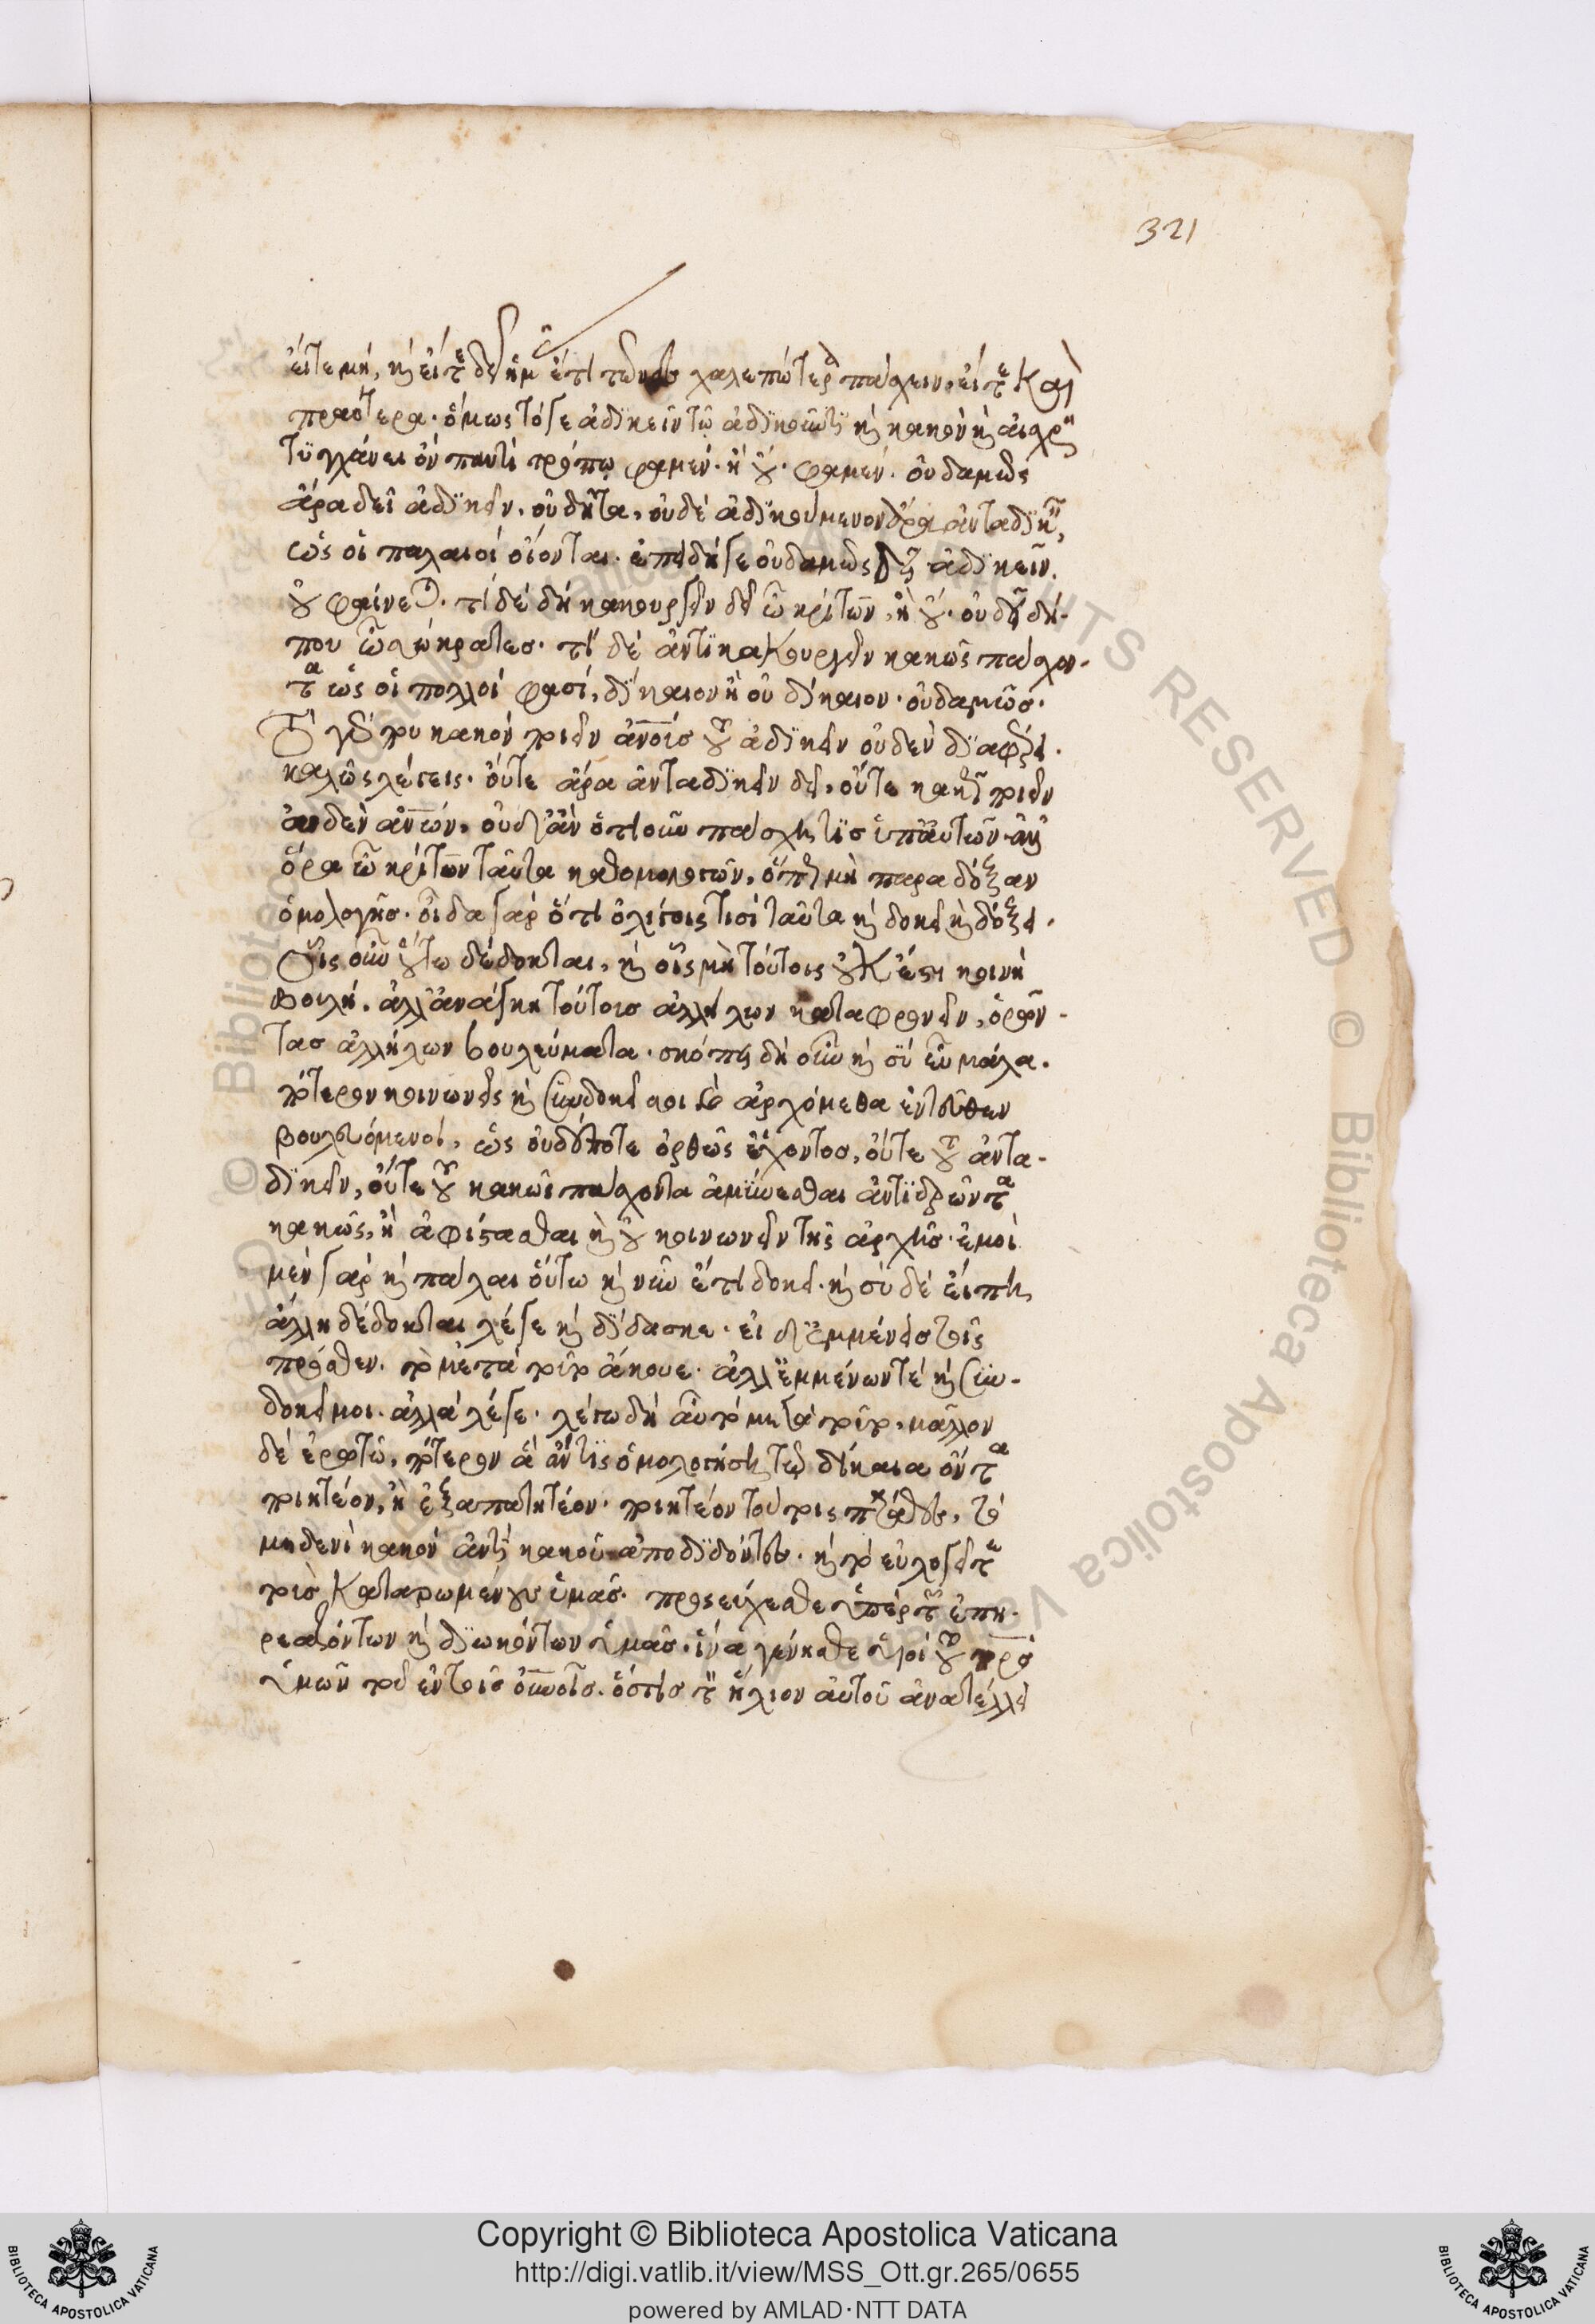 321
εἴτε μή, καὶ εἴτε δεῖ ἡμᾶς ἔτι τῶνδε χαλεπώτερα πάσχειν. εἴτε καὶ
πραότερα. ὅμως τό γε ἀδικεῖν τῷ ἀδικοῦντι καὶ κακὸν καὶ αἰσχρὸν
τυγχάνει ὂν παντὶ τρόπῳ φαμέν. ἢ οὔ. φαμέν. οὐδαμῶς
ἄρα δεῖ ἀδικεῖν. οὐ δῆτα. οὐδὲ ἀδικούμενον ἄρα ἀνταδικεῖν,
ὡς οἱ παλαιοὶ οἴονται. ἐπειδή γε οὐδαμῶς δεῖ ἀδικεῖν.
οὐ φαίνεται. τί δὲ δὴ κακουργεῖν δεῖ ὦ κρίτων, ἢ οὔ. οὐ δεῖ δή-
που ὦ σώκρατες. τί δὲ ἀντικακουργεῖν κακῶς πάσχον-
τα ὡς οἱ πολλοί φασι, δίκαιον ἢ οὐ δίκαιον. οὐδαμῶς.
Τὸ γάρ που κακὸν ποιεῖν ἀνοις τοῦ ἀδικεῖν οὐδὲν διαφέρει.
καλῶς λέγεις. οὔτε ἄρα ἀνταδικεῖν δεῖ, οὔτε κακῶς ποιεῖν
οὐδὲν ἀνων, οὐδ' ἂν ὁτιοῦν πάσχῃ τις ὑπ' αὐτῶν. καὶ
ὅρα ὦ κρίτων ταῦτα καθομολογῶν, ὅπως μὴ παρὰ δόξαν
ὁμολογῇς. οἶδα γὰρ ὅτι ὀλίγοις τισὶ ταῦτα καὶ δοκεῖ καὶ δόξει.
Οἷς οὖν οὕτω δέδοκται, καὶ οἷς μὴ τούτοις οὐκ ἔστι κοινὴ
βουλή. ἀλλ' ἀνάγκη τούτοις ἀλλήλων καταφρονεῖν, ὁρῶν-
τας ἀλλήλων βουλεύματα. σκόπει δὴ οὖν καὶ σὺ εὖ μάλα.
πότερον κοινωνεῖς καὶ συνδοκεῖ σοι καὶ ἀρχόμεθα ἐντεῦθεν
βουλευόμενοι, ὡς οὐδέποτε ὀρθῶς ἔχοντος, οὔτε τοῦ ἀντα-
δικεῖν, οὔτε τοῦ κακῶς πάσχοντα ἀμύνεσθαι ἀντιδρῶντα
κακῶς, ἢ ἀφίστασθαι καὶ οὐ κοινωνεῖν τῆς ἀρχῆς. ἐμοὶ
μὲν γὰρ καὶ πάλαι οὕτω καὶ νῦν ἔτι δοκεῖ. καὶ σὺ δὲ εἴ πῃ
ἄλλῃ δέδοκται λέγε καὶ δίδασκε. εἰ δ' ἐμμένεις τοῖς
πρόσθεν. τὸ μετὰ τοῦτο ἄκουε. ἀλλ' ἐμμένω τέ καὶ συν-
δοκεῖ μοι. ἀλλὰ λέγε. λέγω δὴ αὖ τὸ μετὰ τοῦτο, μᾶλλον
δὲ ἐρωτῶ, πότερον ἃ ἄν τις ὁμολογήσῃ τῳ δίκαια ὄντα
ποιητέον, ἢ ἐξαπατητέον. ποιητέον τούτοις
μηδενὶ κακὸν ἀντὶ κακοῦ ἀποδιδόντες. καὶ τὸ εὐλογεῖτε
τοὺς καταρωμένους ὑμᾶς. προσεύχεσθε ὑπὲρ τῶν ἐπη-
ρεαζόντων καὶ διωκόντων ὑμᾶς. ἵνα γένησθε υἱοὶ τοῦ πρς
ὑμῶν τοῦ ἐν τοῖς οὐνοῖς. ὅστις τὸν ἥλιον αὐτοῦ ἀνατέλλει
Copyright © Biblioteca Apostolica Vaticana
http://digi.vatlib.it/view/MSS_Ott.gr.265/0655
powered by AMLAD·NTT DATA